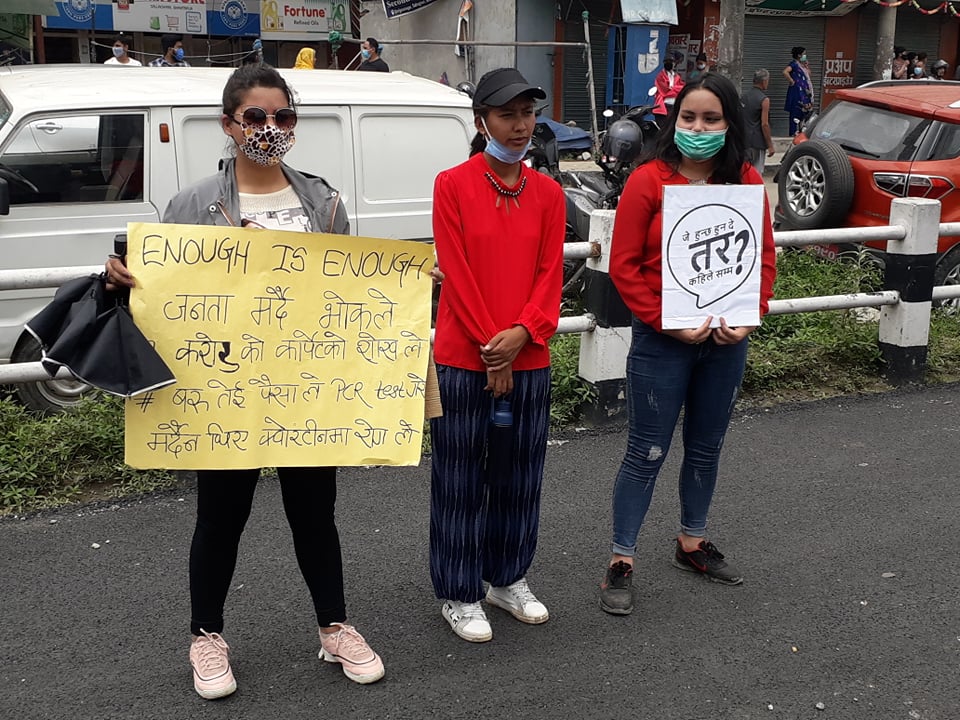 Fortune
Refined Oils
ENOUGH IS ENOUGH
जनता मर्दै भोकले
करोड को कार्पेटको शोख ले
# बरु तेई पैसा ले PCR test गरे
मर्दैन थिए क्वारंटीनमा रोग ले
जे हुन्छ हुन दे
तर?
कहिले सम्म